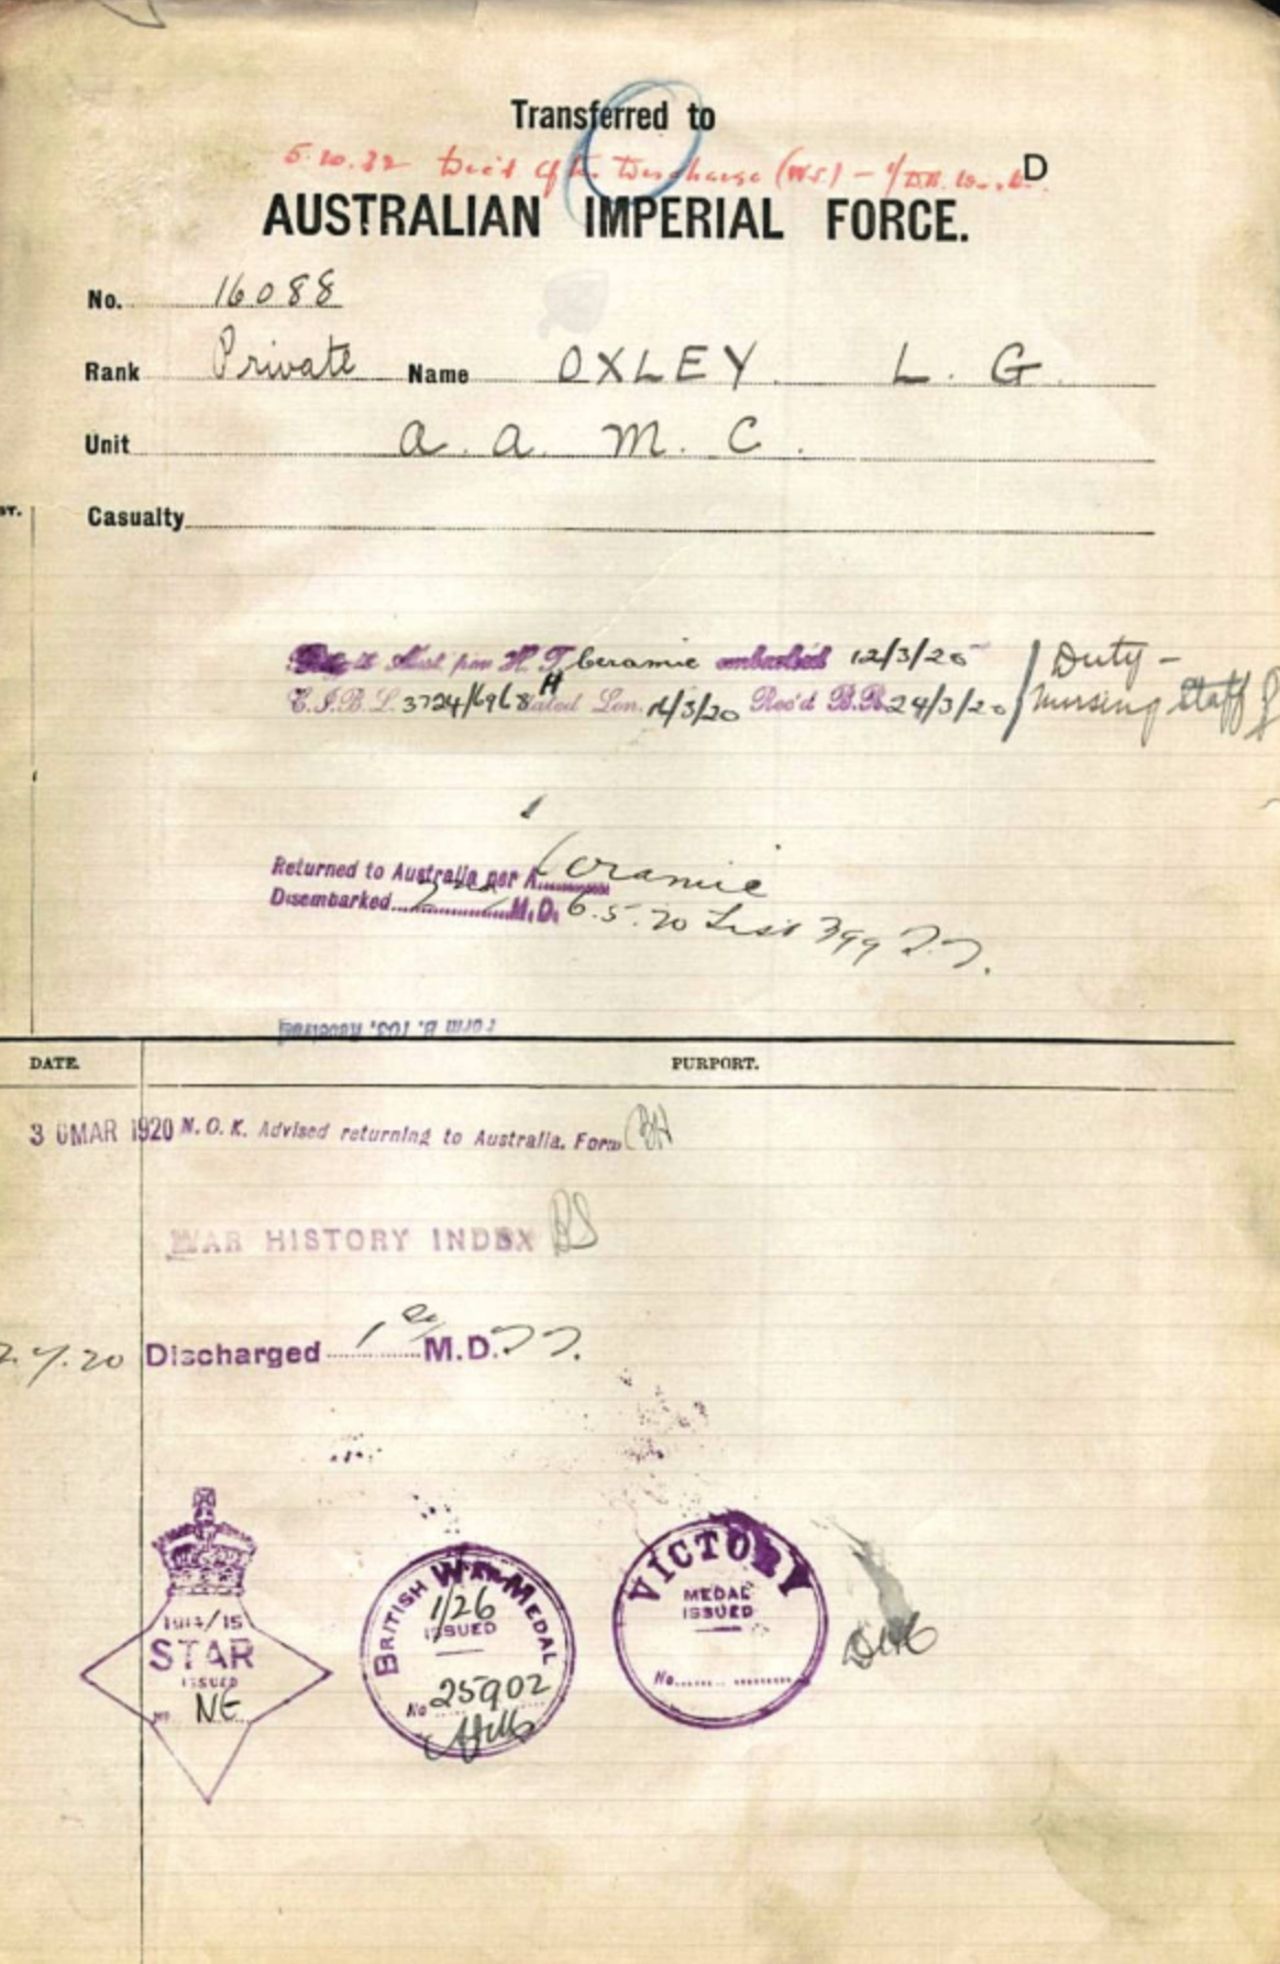 Transferred to
5.10.32 Died after Discharge (W.S.) -
D
AUSTRALIAN IMPERIAL FORCE.
No. 16088
Rank Private Name OXLEY L. G.
Unit A. A. M. C.
Casualty
ST.
to Aust per H.T. Ceramic embarked 12/3/20 / Duty -
E.I.B.L. 3724/6968 H dated Lon. 16/3/20 Rec'd B.R. 24/3/20 / Nursing Staff
Returned to Australia per A. Ceramic
Disembarked 2nd M.D. 6.5.20 List 399
Form B. 103. Received
DATE. PURPORT.
30 MAR 1920 N.O.K. Advised returning to Australia. Form BH
WAR HISTORY INDEX
.7.20 Discharged 1st M.D.
1914/15
STAR
ISSUED
No. NE
BRITISH WAR MEDAL
1/26
ISSUED
No 25902
VICTORY
MEDAL
ISSUED
No.